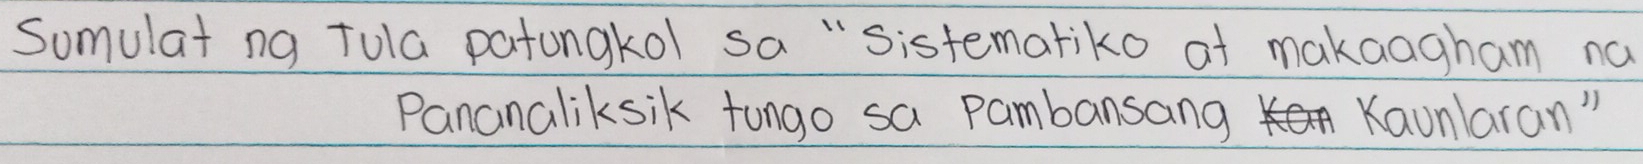 Sumulat ng Tula patungkol sa "Sistematiko at makaagham na
Pananaliksik tungo sa Pambansang Kaunlaran"